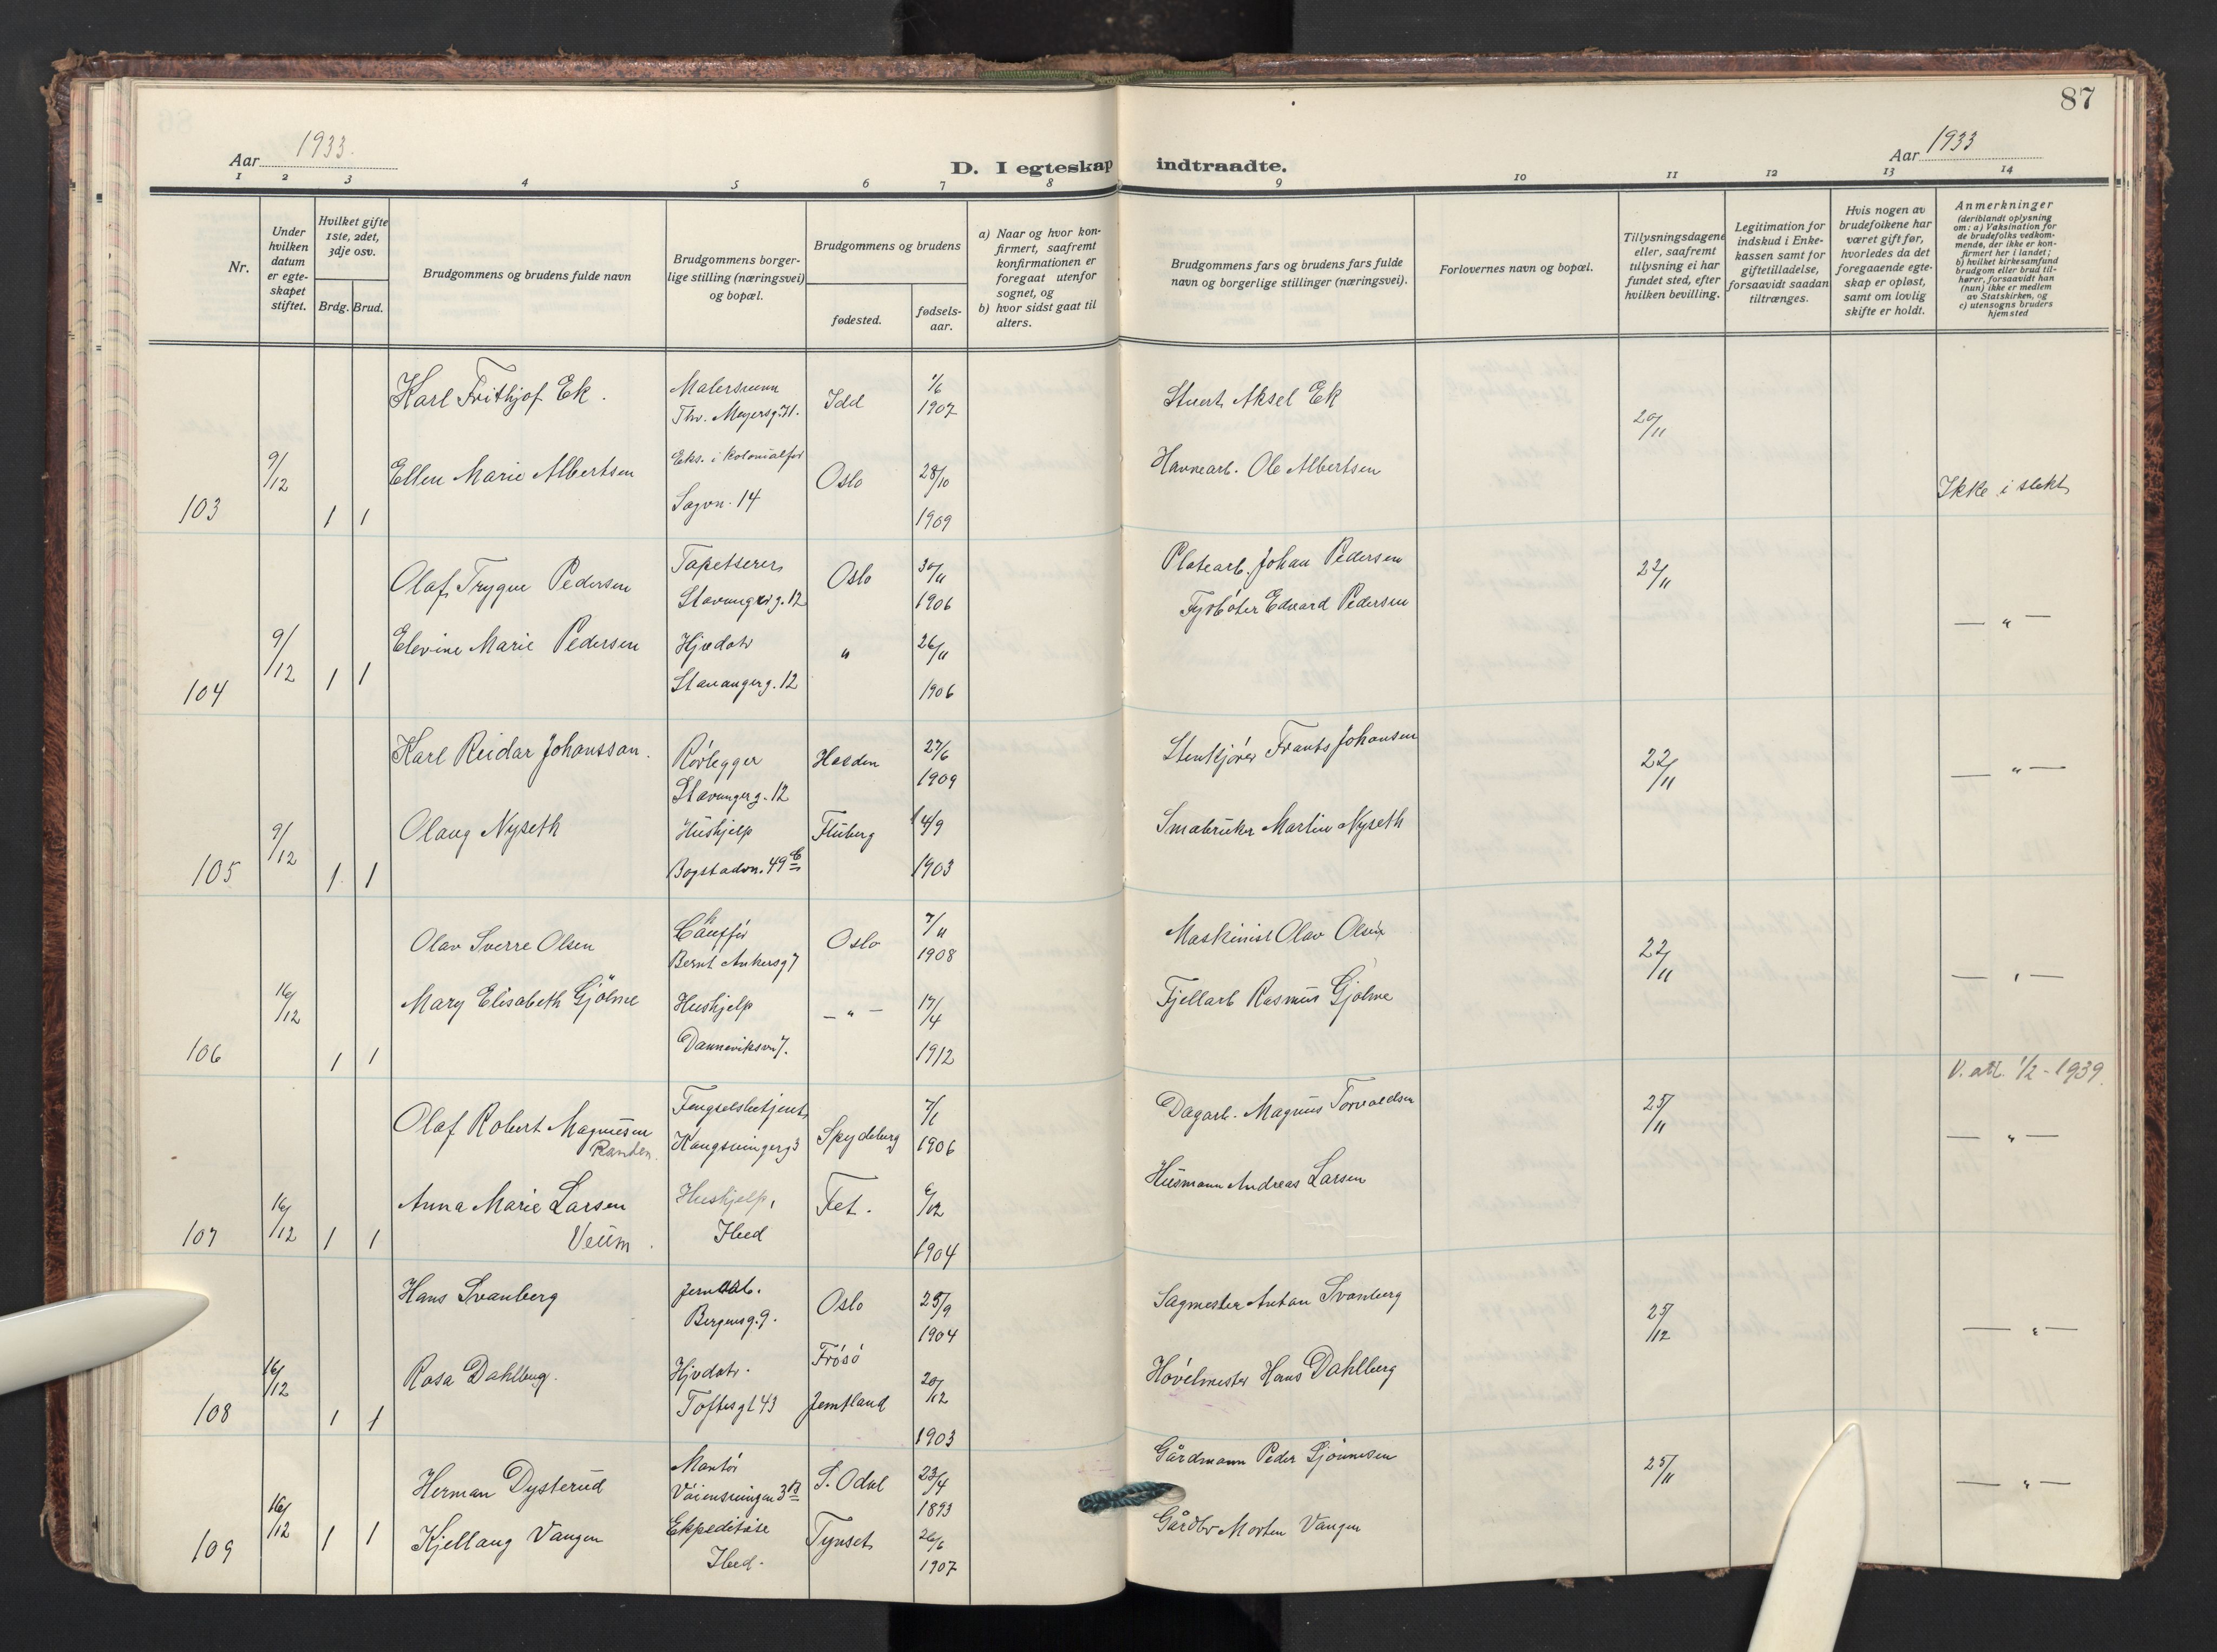 87
Aar 1933.
Aar 1933
D. I egteskap indtraadte.
1 2 3 4 5 6 7 8 9 10 11 12 13 14
Nr.
Under hvilken datum er egteskapet stiftet.
Hvilket gifte 1ste, 2det, 3dje osv.
Brdg. Brud.
Brudgommens og brudens fulde navn
Brudgommens borgerlige stilling (næringsvei) og bopæl.
Brudgommens og brudens
fødested.
fødselsaar.
a) Naar og hvor konfirmert, saafremt konfirmationen er foregaat utenfor sognet, og
b) hvor sidst gaat til alters.
Brudgommens fars og brudens fars fulde navn og borgerlige stillinger (næringsvei).
Forlovernes navn og bopæl.
Tillysningsdagene eller, saafremt tillysning ei har fundet sted, efter hvilken bevilling.
Legitimation for indskud i Enkekassen samt for giftetilladelse, forsaavidt saadan tiltrænges.
Hvis nogen av brudefolkene har været gift før, hvorledes da det foregaaende egteskap er opløst, samt om lovlig skifte er holdt.
Anmerkninger
(deriblandt oplysning om: a) Vaksination for de brudefolks vedkommende, der ikke er konfirmert her i landet; b) hvilket kirkesamfund brudgom eller brud tilhører, forsaavidt han (hun) ikke er medlem av Statskirken, og c) utensogns bruders hjemsted
Karl Frithjof Ek. Malersvenn Thv. Meyersg. 71. Idd 1/6 1907 Stuert Aksel Ek 20/11
103 9/12 1 1 Ellen Marie Albertsen Eks. i kolonialfor Sagvn. 14 Oslo 28/10 1909 Havnearb. Ole Albertsen Ikke i slekt
Olaf Trygve Pedersen Tapetserer Stavangerg. 12 Oslo 30/11 1906 Platearb. Johan Pedersen 22/11
104 9/12 1 1 Elevine Marie Pedersen Hjvdatr Stavangerg. 12 " 26/11 1906 Fyrbøter Edvard Pedersen — " —
Karl Reidar Johansson. Rørlegger Stavangerg. 12 Halden 27/6 1909 Stenkjører Frants Johansen 22/11 — " —
105 9/12 1 1 Olaug Nyseth Hushjelp Bogstadvn. 49 C Fluberg 14/9 1903 Småbruker Martin Nyseth
Olav Sverre Olsen Chauffør Bernt Ankersg 7 Oslo 7/11 1908 Maskinist Olav Olsen 22/11 — " —
106 16/12 1 1 Mary Elisabeth Gjölme Hushjelp Danneviksvn 7. — " — 17/4 1912 Fjellarb Rasmus Gjölme
V. att. 1/2 - 1939.
Olaf Robert Magnusen Randen. Fengselsbetjent Kongsvingerg 3 Spydeberg 7/1 1906 Dagarb. Magnus Torvaldsen 25/11 — " —
107 16/12 1 1 Anna Marie Larsen Veum. Hushjelp, Ibed Fet. 6/12 1904 Husmann Andreas Larsen
Hans Svanberg Jernarb. Bergensg. 9. Oslo 25/9 1904 Sagmester Anton Svanberg 25/12 — " —
108 16/12 1 1 Rosa Dahlberg. Hjvdatr. Toftesgt 43 Frösö Jemtland 20/12 1903 Høvelmester Hans Dahlberg
Herman Dysterud Montør Vøiensvingen 3 B S. Odal 23/4 1893 Gårdmann Peder Sjønnesen 25/11 — " —
109 16/12 1 1 Kjellaug Vangen Ekspeditrise Ibed. Tynset 26/6 1907 Gårdbr Morten Vangen